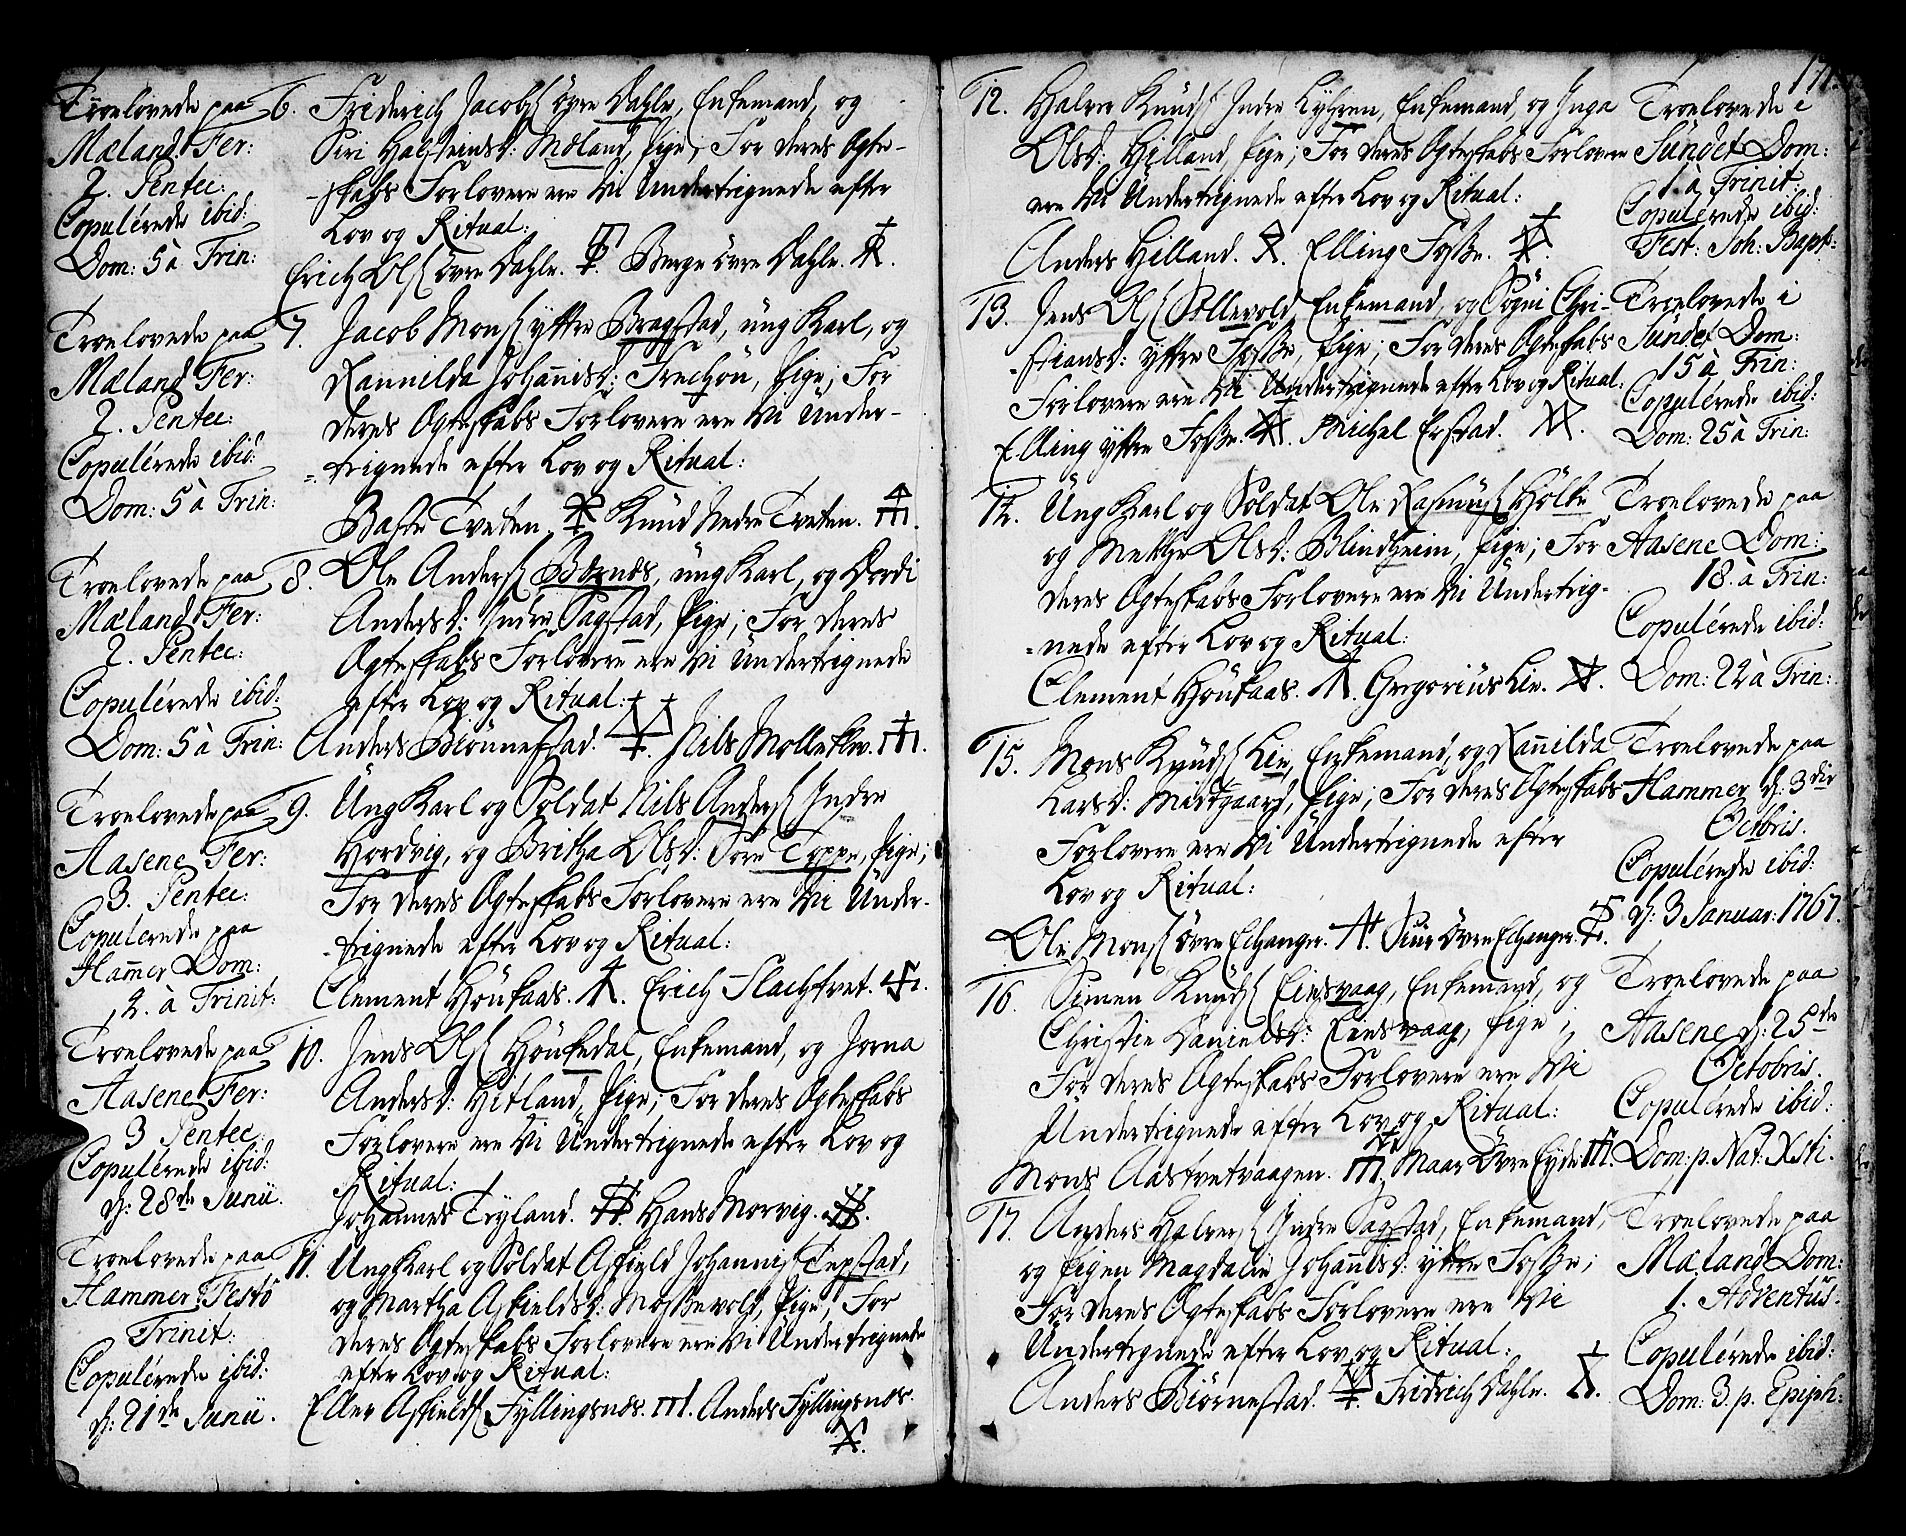 Troelovede paa
Mæland Fer:
2. Pentec:
Copulérede ibid:
Dom: 5 à Trin:
6. Friderich Jacobs. öfre Dahle, Enkemand, og
Siri Halsteinsd: Möland, Pige; For deres Ægte-
-skabs Forlovere ere Vi Undertegnede efter
Lov og Ritual:
Erich Ols. övre Dahle. Berge övre Dahle.
Troelovede paa
Mæland Fer:
2. Pentec:
Copulérede ibid:
Dom: 5 à Trin:
7. Jacob Mons. yttre Bragstad, ung Karl, og
Rannilda Johannisd: Trechöu, Pige; For
deres Ægteskabs Forlovere ere Vi Under-
-tegnede efter Lov og Ritual:
Baste Tveten. Knud Nedre Tveten.
Troelovede paa
Mæland Fer:
2. Pentec:
Copulérede ibid:
Dom: 5 à Trin:
8. Ole Anders. Bernæs, ung Karl, og Dordi
Andersd: Indre Sagstad, Pige; For deres
Ægteskabs Forlovere ere Vi Undertegnede
efter Lov og Ritual:
Anders Biönnestad. Nils Molleklev.
Troelovede paa
Aasene Fer:
3. Pentec:
Copulerede paa
Hamer Dom:
2. à Trinit:
9. Ung Karl og Soldat Nils Anders. Indre
Hordvig, og Britha Olsd: Söre Toppe, Pige;
For deres Ægteskabs Forlovere ere Vi Under-
-tegnede efter Lov og Ritual:
Clement Höukaas. Erich Flachtvet.
Troelovede paa
Aasene Fer:
3 Pentec:
Copulérede ibid:
d: 28de Junii.
10. Jens Ols. Höukedal, Enkemand, og Jorna
Andersd: Hitland, Pige; For deres Ægteskabs
Forlovere ere Vi Undertegnede efter Lov og
Ritual:
Johannes Tryland. Hans Morvig.
Troelovede paa
Hammer Festo
Trinit:
Copulérede ibid:
d: 21de Junii.
11. Ung Karl og Soldat Askield Johannis. Tepstad,
og Martha Askieldsd: Mossevold, Pige; For
deres Ægteskabs Forlovere ere Vi Undertegnede
efter Lov og Ritual:
Eller Askields. Fyllingsnæs. Anders Fyllingsnæs.
171.
12. Halvor Knuds. Indre Kyhren, Enkemand, og Inga
Olsd: Hilland, Pige; For deres Ægteskabs Forlovere
ere Vi Undertegnede efter Lov og Ritual:
Anders Hilland. Elling Fosse.
Troelovede i
Sundet Dom:
1. à Trinit.
Copulérede ibid:
Fest: Joh: Bapt:
13. Jens Ols. Sollevold, Enkemand, og Sögni Chri-
-stiansd: yttre Fosse, Pige; For deres Ægteskabs
Forlovere ere Vi Undertegnede efter Lov og Ritual:
Elling yttre Fosse. Michel Erstad.
Troelovede i
Sundet Dom:
15 à Trin:
Copulérede ibid:
Dom: 25 à Trin:
14. Ung Karl og Soldat Ole Rasmus. Holke
og Metthe Olsd: Blindheim, Pige; For
deres Ægteskabs Forlovere ere Vi Underteg-
-nede efter Lov og Ritual:
Clement Höukaas. Gregorius Lie.
Troelovede paa
Aasene Dom:
18. à Trin:
Copulérede ibid:
Dom: 22 à Trin:
15. Mons Knuds. Lie, Enkemand, og Rannilda
Larsd: Midtgaard, Pige; For deres Ægteskabs
Forlovere ere Vi Undertegnede efter
Lov og Ritual:
Ole Mons. övre Elhanger. Siur Övre Elhanger.
Troelovede paa
Hammer d: 3die
Octbris.
Copulérede ibid:
d: 3 Januar: 1767.
16. Simen Knuds. Eidsvaag, Enkemand, og
Christie Danielsd: Eidsvaag, Pige;
For deres Ægteskabs Forlovere ere Vi
Undertegnede efter Lov og Ritual:
Mons Aastvetvaagen. Maar Övre Eyde.
Troelovede paa
Aasene d: 25de
Octobris.
Copulérede ibid:
Dom: p. Nat: Xsti.
17. Anders Halvers. Indre Sagstad, Enkemand,
og Pigen Magdalie Johannisd: yttre Fosse;
For deres Ægteskabs Forlovere ere Vi
Undertegnede efter Lov og Ritual:
Anders Biörnestad. Fridrich Dahle.
Troelovede paa
Mæland Dom:
1. Adventus.
Copulérede ibid:
Dom: 3. p. Epiph: